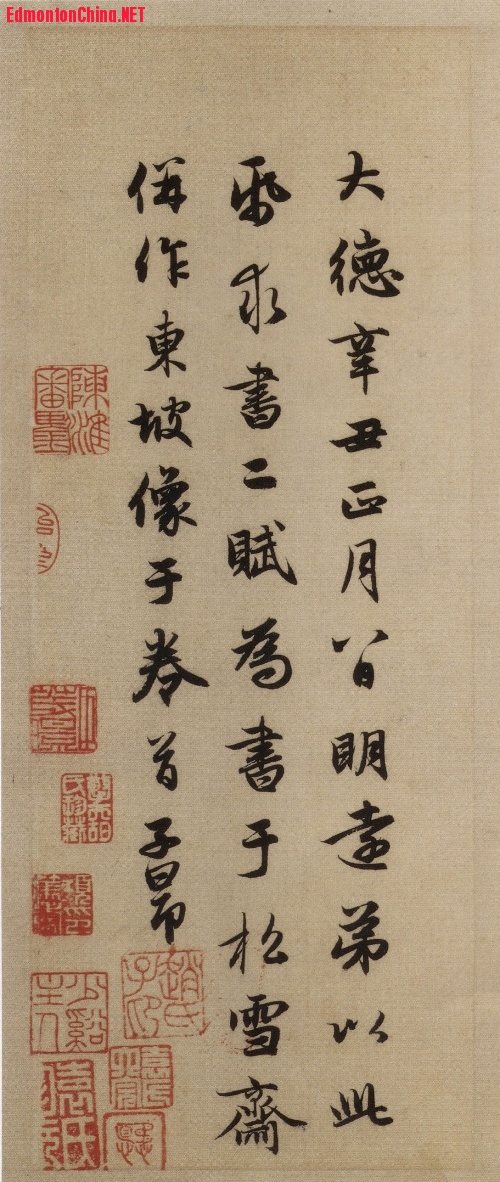 EdmontonChina.NET
大德辛丑正月八日明遠弟以此
紙求書二賦為書于松雪齋
併作東坡像于卷首子昂
陳淮
趙氏
子印